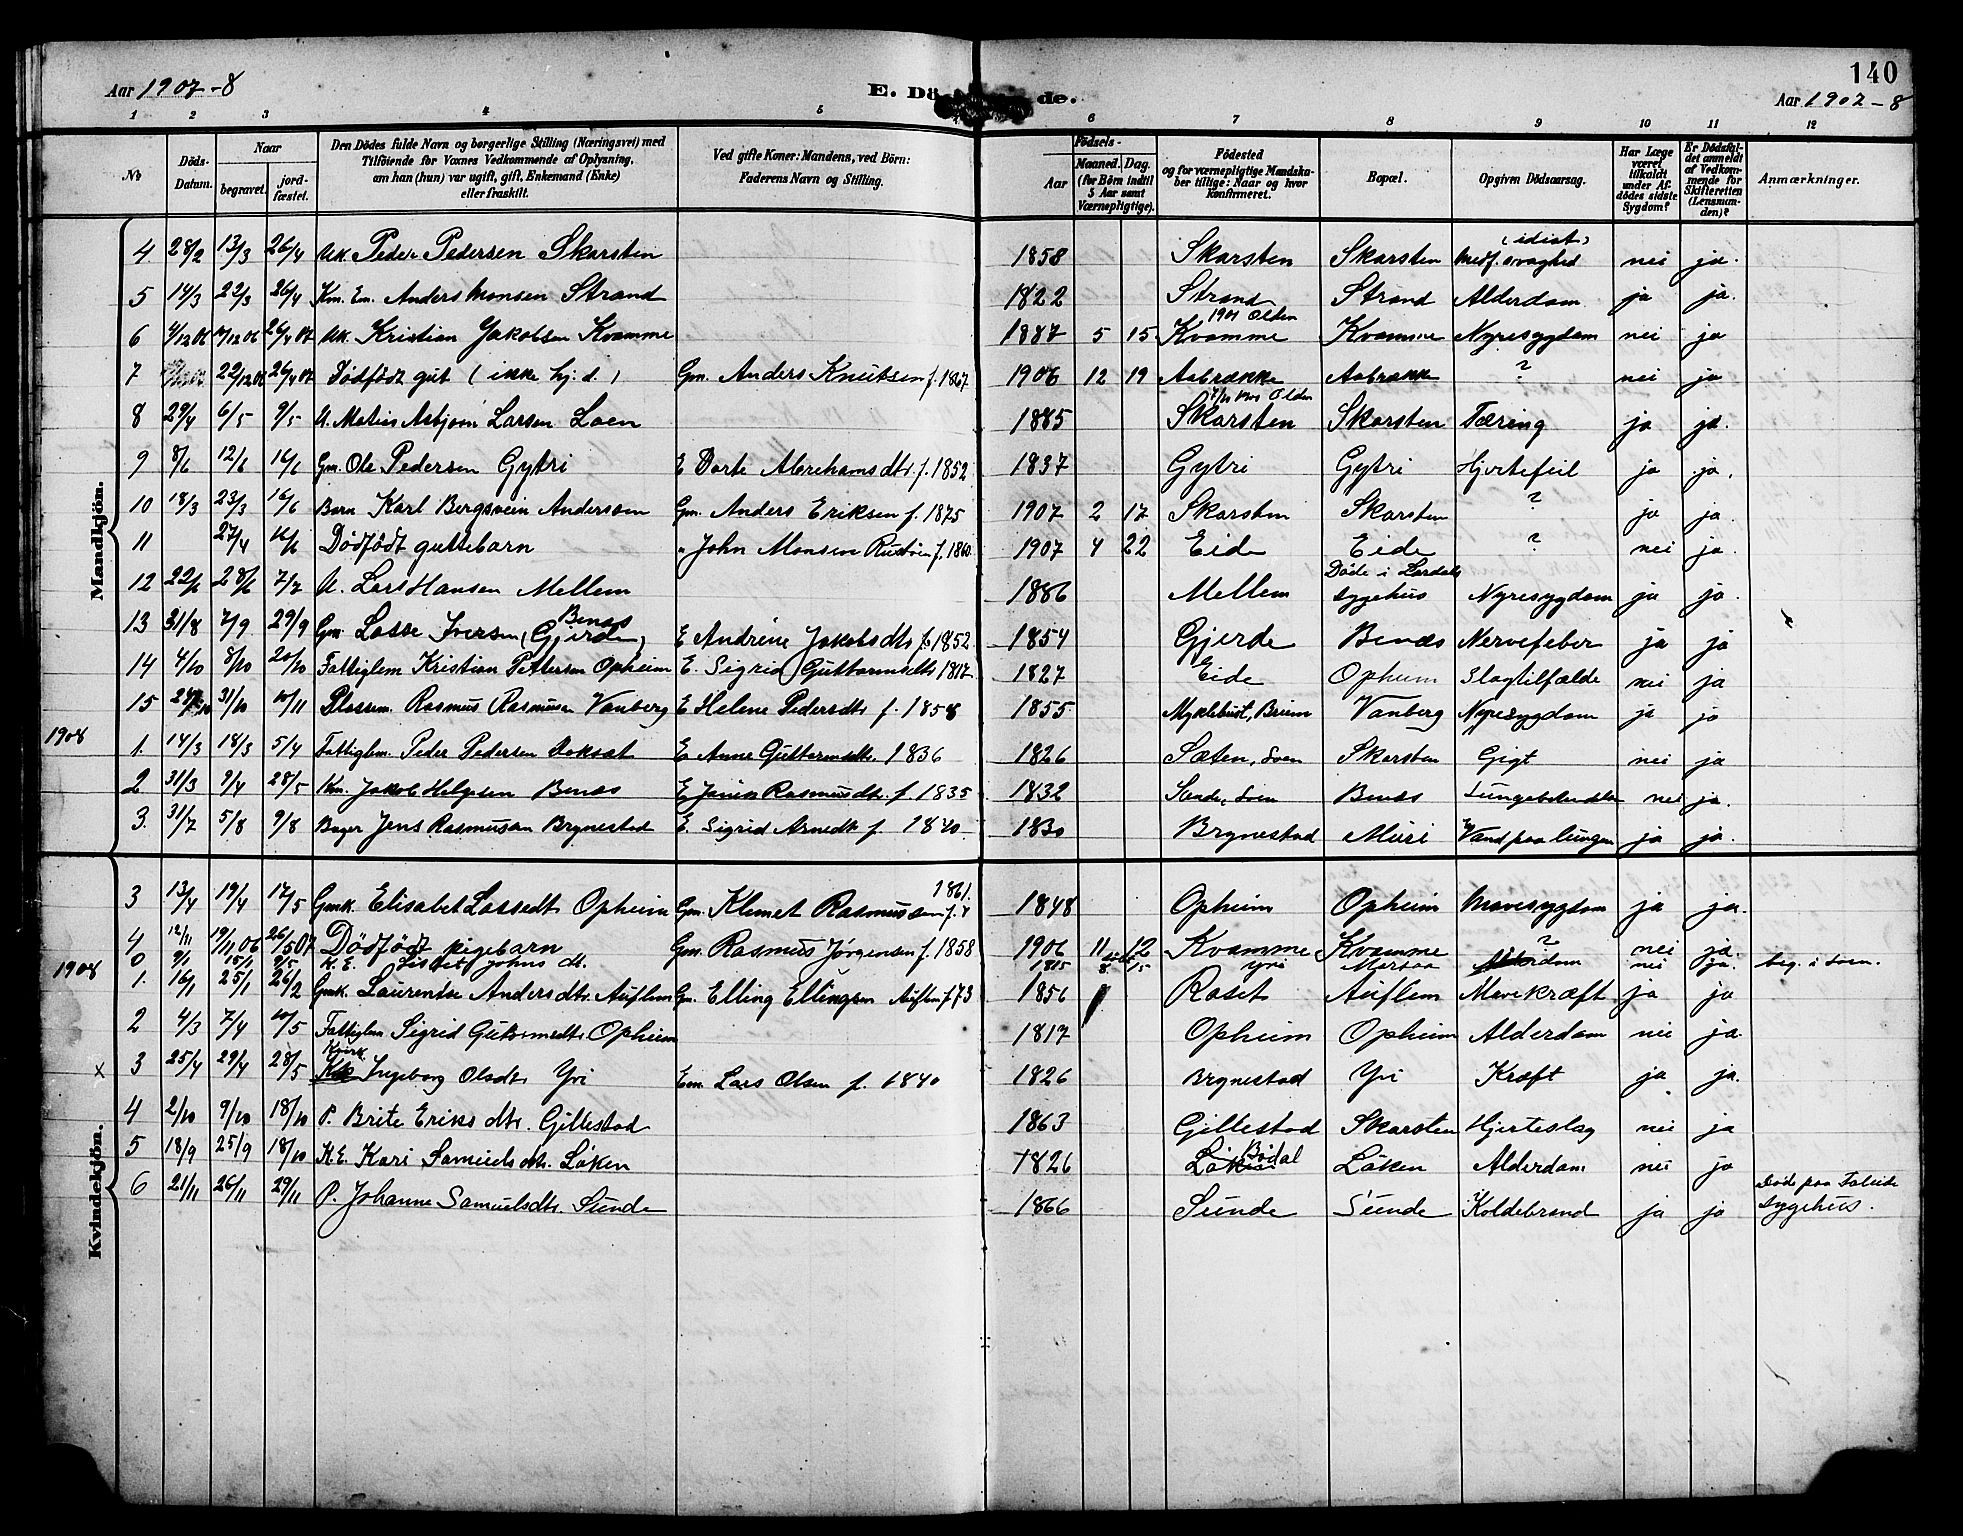 140
Aar 1907-8 E. Dö de. Aar 1907-8
1 2 3 4 5 6 7 8 9 10 11 12
No
Döds-Datum.
Naar
begravet.
jord-fæstet.
Den Dödes fulde Navn og borgerlige Stilling (Næringsvei) med
Tilföiende for Voxnes Vedkommende af Oplysning,
om han (hun) var ugift, gift, Enkemand (Enke)
eller fraskilt.
Ved gifte Koner: Mandens, ved Börn:
Faderens Navn og Stilling.
Födsels-
Aar
Maaned. Dag.
(for Börn indtil
5 Aar samt
Værnepligtige).
Födested
og for værnepligtige Mandska-
ber tillige: Naar og hvor
Konfirmeret.
Bopæl.
Opgiven Dödsaarsag.
Har Læge
været
tilkaldt
under Af-
dödes sidste
Sygdom?
Er Dödsfal-
det anmeldt
af Vedkom-
mende for
Skifteretten
(Lensman-
den)?
Anmærkninger.
Mandkjön.
4. 28/2 13/3 26/4 Uk. Peder Pedersen Skarsten 1858 Skarsten Skarsten Medf. svaghed (idiot) nei ja.
5 14/3 22/3 26/4 Km. Em. Anders Monsen Strand 1822 Strand Strand Alderdom ja ja.
6 4/12 06 /12 06 26/4 07 Uk. Kristian Jakobsen Kvamme 1887 5 15 Kvamme 1901 Olden Kvamme Nyresygdom nei ja
7 22/12 06 26/4 07 Dödfödt gut (ikke hj. d.) Gm. Anders Knutsen f. 1867 1906 12 19 Aabrække Aabrække ? nei ja
8 29/4 6/5 9/5 U. Matias Asbjørn Larsen Loen 1885 Skarsten Olden Skarsten Tæring ja ja.
9 8/6 12/6 16/6 Gm. Ole Pedersen Gytri E Dorte Abrehamsdtr. f. 1852 1837 Gytri Gytri Hjertefeil ja ja.
10 18/3 23/3 16/6 Barn Karl Bergsvein Andersen Gm. Anders Eriksen f. 1875 1907 2 17 Skarsten Skarsten ? ja ja.
11 27/4 16/6 Dödfödt guttebarn " John Monsen Rustöen f. 1860. 1907 4 22 Eide Eide ? nei ja.
12 22/6 28/6 7/7 U. Lars Hansen Mellem 1886 Mellem Döde i Lærdals sygehus Nyresygdom ja ja.
13 31/8 7/9 29/9 Gm. Lasse Iversen (Gjerde) Benæs E Andrine Jakobsdtr f. 1852. 1854 Gjerde Benæs Nervefeber ja ja
14 4/10 8/10 20/10 Fattiglem Kristian Pettersen Opheim E. Sigrid Guttormsdtr 1817. 1827 Eide Opheim Slagtilfælde nei ja
15 31/10 10/11 Plassem. Rasmus Rasmusen Vanberg E Helene Pedersdtr. f. 1858 1855 Myklebust, Breim Vanberg Nyresygdom ja ja
1908
1. 14/3 18/3 5/4 Fattiglm. Peder Pedersen Aoksat E. Anne Guttormsdtr. 1836 1826 Sæten, Loen Skarsten Gigt nei ja
2 31/3 9/4 28/5 Km. Jakob Helgesen Benæs E. Rasmusdtr. f. 1835 1832 Sande, Loen Benæs Lungebetendelse nei ja.
3. 31/7 5/8 9/8 Bager Jens Rasmusen Brynestad E. Sigrid Arnedtr f. 1840. 1830 Brynestad Muri Vand paa lungen ja ja.
Kvindekjön.
3 13/4 19/4 17/5 Gmk. Elisabet Lassedtr Opheim Gm. Klemet Rasmusen f. 1861. 1848 Opheim Opheim Mavesygdom ja ja.
4 12/11 19/11 06 26/5 07 Dödfödt pigebarn Gm. Rasmus Jørgensen f. 1858 1906 11 12 Kvamme Kvamme ? nei ja.
1908
0 9/1 15/1 2/5 K. E. Lisbet Johns dt. 1815 8 15 Yri Alderdom nei ja. beg. i Loen.
1. 16/1 25/1 26/2 Gmk. Laurentse Andersdtr. Auflem Gm. Elling Ellingsen Auflem f. 73 1856 Roset Auflem Mavekræft ja ja
2 4/3 7/4 10/5 Fattiglem Sigrid Guttormsdtr Opheim 1817 Opheim Opheim Alderdom nei ja.
x 3 25/4 29/4 28/5 Ingeborg Olsdtr Yri Em. Lars Olsen f. 1840 1826 Brynestad Yri Kræft ja ja.
4 2/10 9/10 18/10 P. Brite Eriks dtr. Gillestad 1863 Gillestad Skarsten Hjerteslag nei ja
5 18/9 25/9 18/10 K.E. Kari Samuels dtr. Löken 1826 Bødal Löken Alderdom nei ja
6 21/11 26/11 29/11 P. Johanne Samuelsdtr. Sunde 1866 Sunde Sunde Koldebrand ja ja Döde paa Faleide Sygehus.